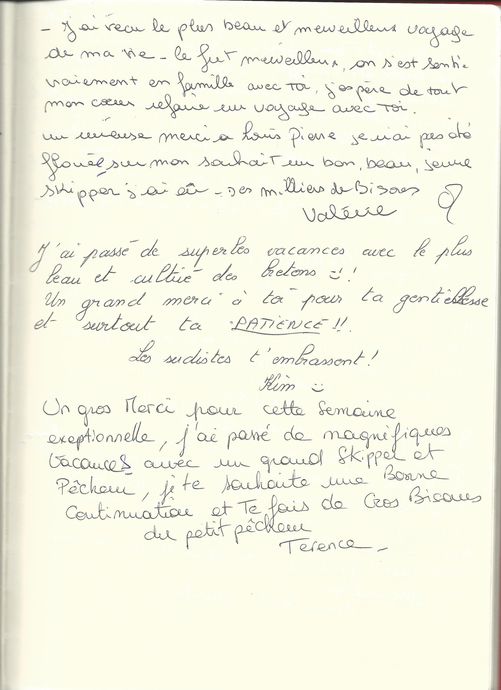 - J'ai vécu le plus beau et merveilleux voyage
de ma vie - ce fut merveilleux, on s'est sentie
vraiement en famille avec Toi, j'espère de tout
mon cœur refaire un voyage avec Toi.
un merci a Louis Pierre je n'ai pas été
flouée sur mon souhait un bon, beau, jeune
skipper j'ai eû - Des milliers de Bisous
Valérie
J'ai passé de superbes vacances avec le plus
beau et cultivé des bretons !
Un grand merci à toi pour ta gentiellesse
et surtout ta PATIENCE !!.
Les sudistes t'embrassent !
Kim
Un gros Merci pour cette Semaine
exeptionnelle, j'ai passé de magnéfiques
Vacances avec un grand Skipper et
Pêcheur, je te souhaite une Bonne
Continuation et Te fais de Gros Bisous
du petit pêcheur
Terence -